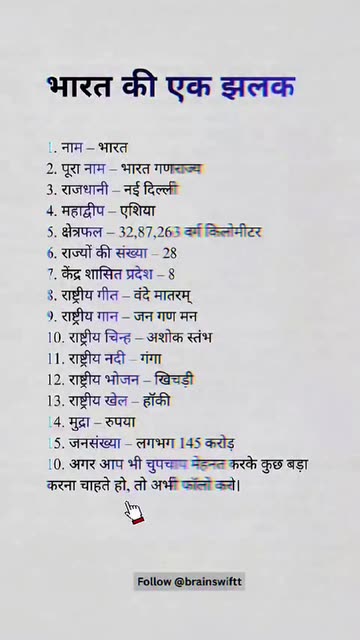 भारत की एक झलक
1. नाम – भारत
2. पूरा नाम – भारत गणराज्य
3. राजधानी – नई दिल्ली
4. महाद्वीप – एशिया
5. क्षेत्रफल – 32,87,263 वर्ग किलोमीटर
6. राज्यों की संख्या – 28
7. केंद्र शासित प्रदेश – 8
8. राष्ट्रीय गीत – वंदे मातरम्
9. राष्ट्रीय गान – जन गण मन
10. राष्ट्रीय चिन्ह – अशोक स्तंभ
11. राष्ट्रीय नदी – गंगा
12. राष्ट्रीय भोजन – खिचड़ी
13. राष्ट्रीय खेल – हॉकी
14. मुद्रा – रुपया
15. जनसंख्या – लगभग 145 करोड़
10. अगर आप भी चुपचाप मेहनत करके कुछ बड़ा
करना चाहते हो, तो अभी फॉलो करो।
Follow @brainswiftt